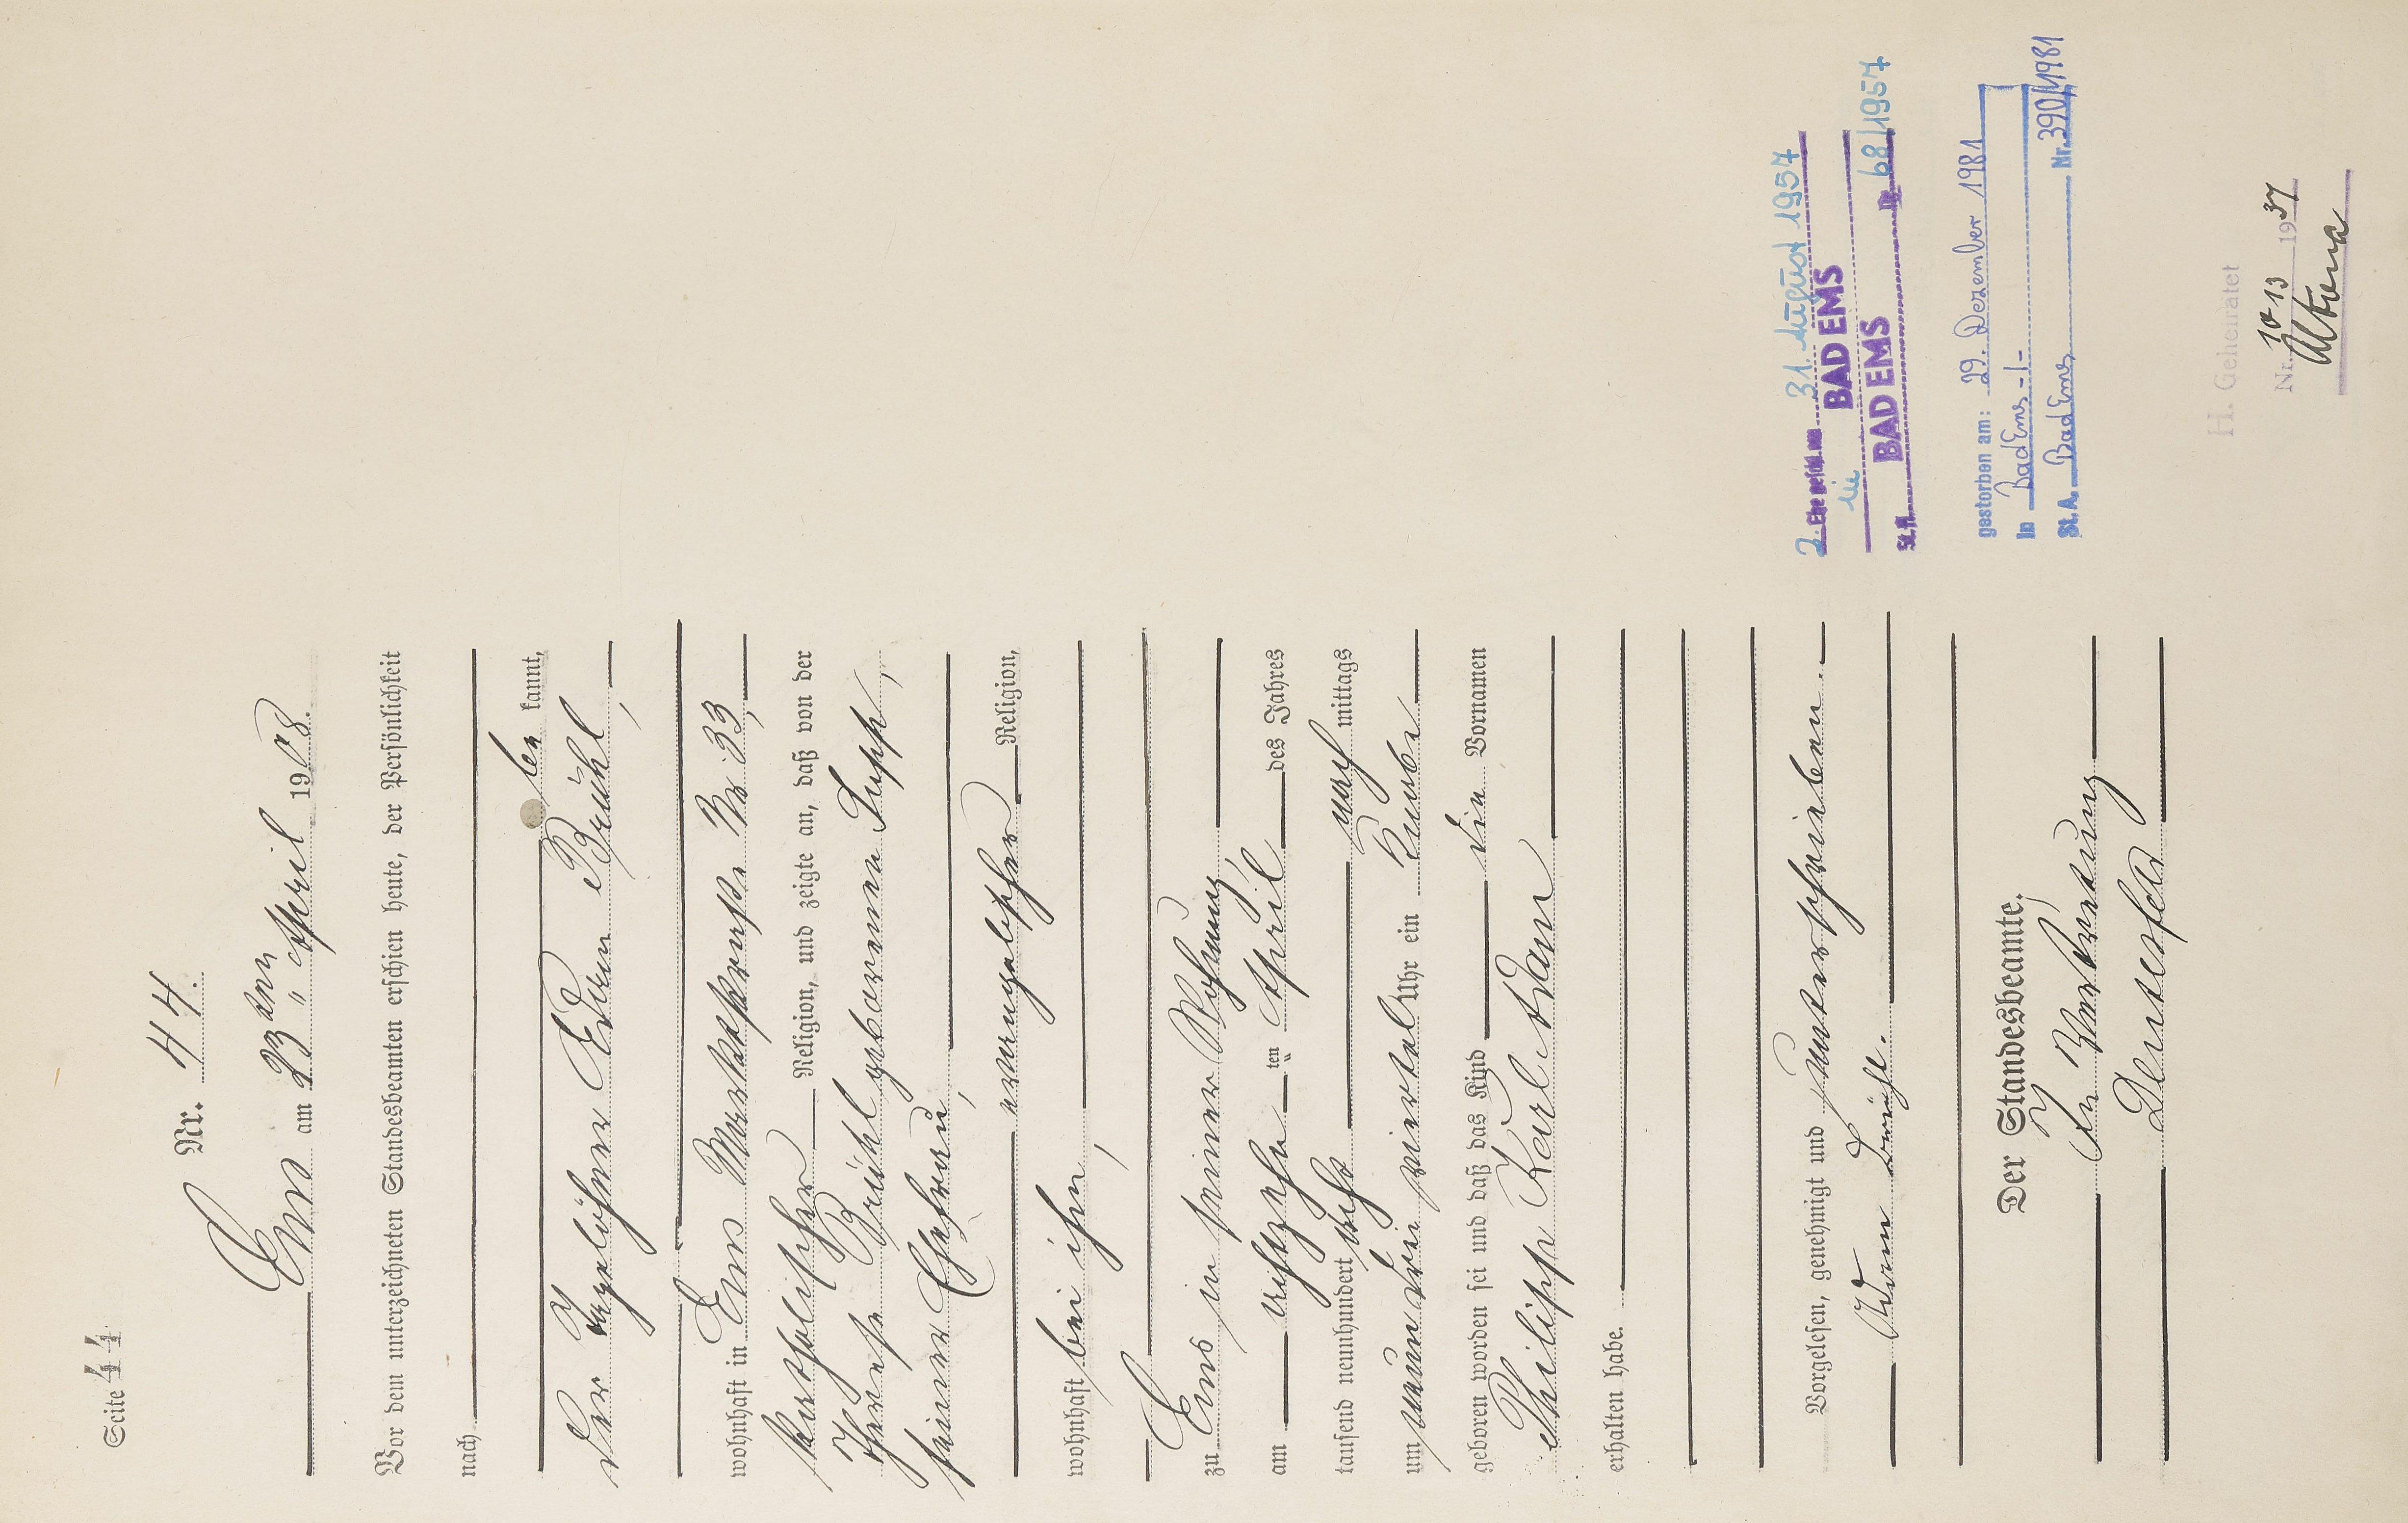 Seite 44
Nr. 44.
Ems am 23ten " April 1908.
Vor dem unterzeichneten Standesbeamten erschien heute, der Persönlichkeit
nach
be kannt,
der Tagelöhner Adam Brühl,
wohnhaft in Ems Marktstraße Nr 33,
katholischer Religion, und zeigte an, daß von der
Therese Brühl geborenen Supp,
seiner Ehefrau,
evangelischer Religion,
wohnhaft bei ihm,
zu Ems in seiner Wohnung
am achtzehn ten April des Jahres
tausend neunhundert acht nach mittags
um neun drei viertel Uhr ein Knabe
geboren worden sei und daß das Kind die Vornamen
Philipp Karl Adam
erhalten habe.
Vorgelesen, genehmigt und unterschrieben.
Adam Brühl.
Der Standesbeamte.
In Vertretung
2. Eheschl. am 31. August 1957
in BAD EMS
St.A. BAD EMS Nr. 68/1957
gestorben am: 29. Dezember 1981
in Bad Ems -I-
St.A. Bad Ems Nr. 390/1981
H. Geheiratet
Nr. 1013 1937
Altona